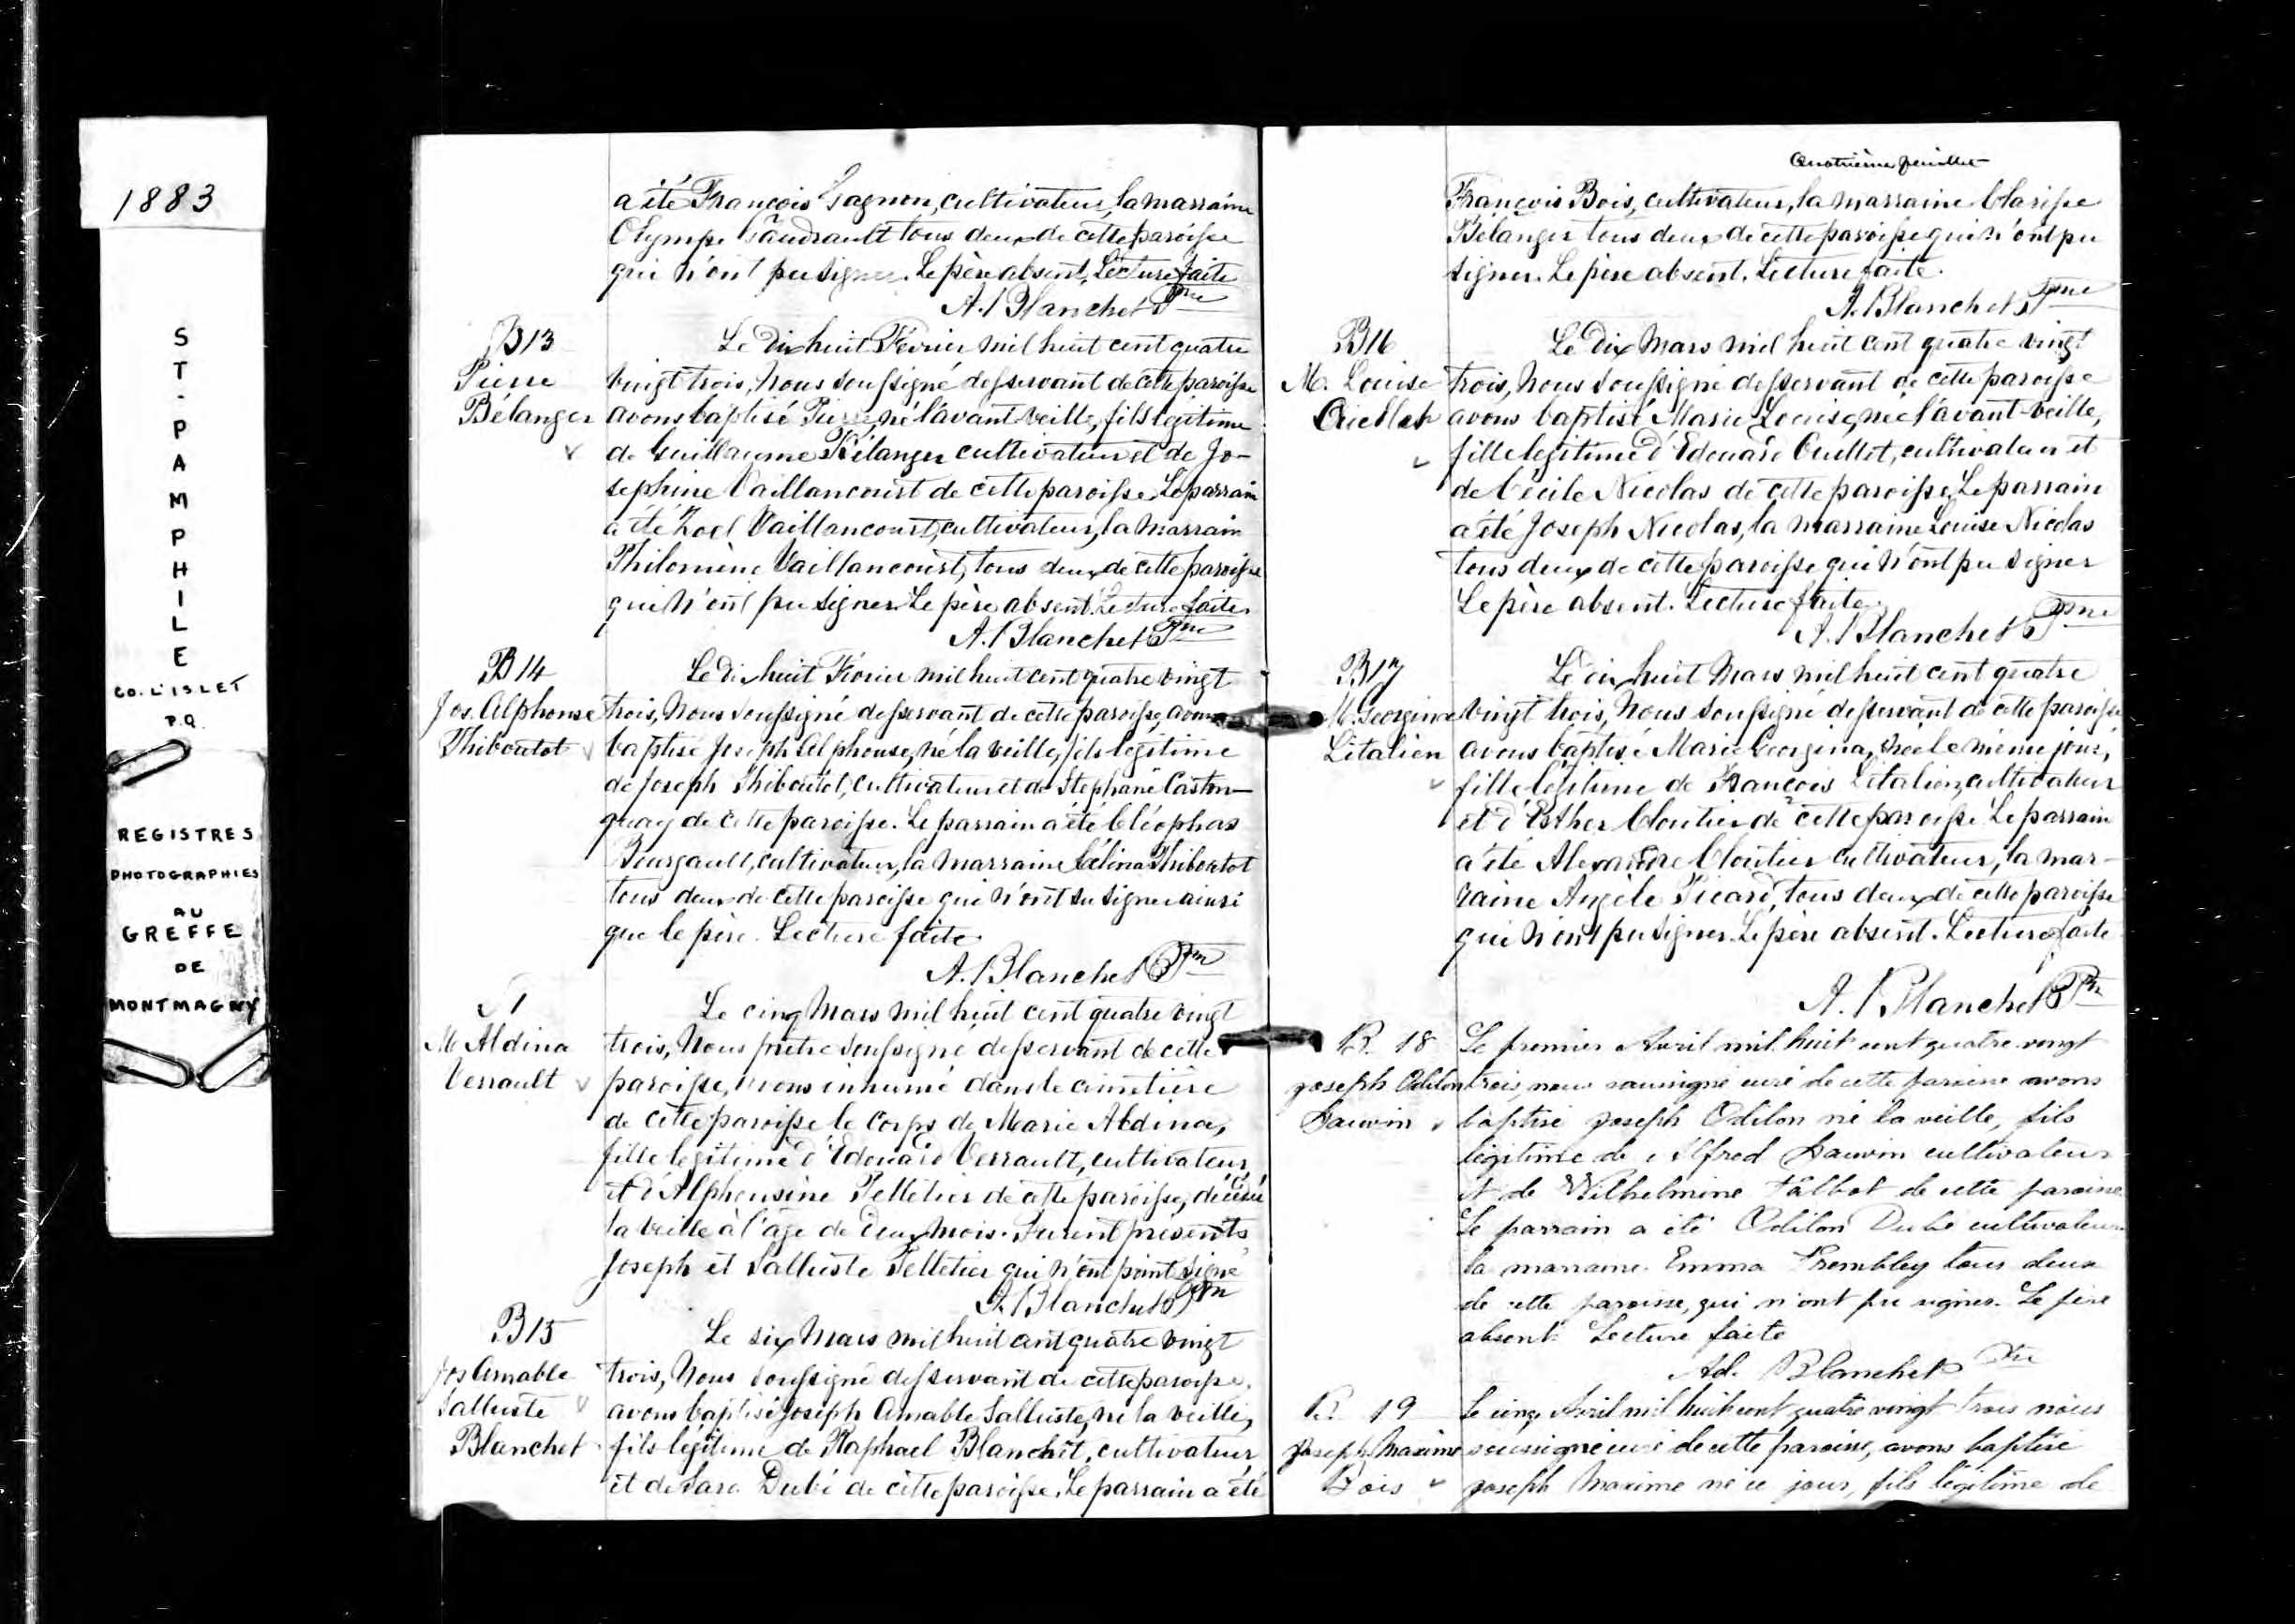 1883
ST-PAMPHILE
CO. L'ISLET
P.Q.
REGISTRES
PHOTOGRAPHIES
AU
GREFFE
DE
MONTMAGNY
a été François Gagnon, cultivateur, la marraine
Olympe Gaudrault tous deux de cette paroisse
qui n'ont pu signer. Le père absent. Lecture faite
A. Blanchet Ptre
B13
Pierre
Bélanger
Le Dix huit Février mil huit cent quatre
vingt trois, Nous soussigné desservant de cette paroisse
avons baptisé Pierre, né l'avant veille, fils légitime
de Guillaume Bélanger cultivateur et de Jo-
sephine Vaillancourt de cette paroisse. Le parrain
a été Zoel Vaillancourt, cultivateur, la Marrain
Philomène Vaillancourt, tous deux de cette paroisse
qui n'ont pu signer. Le père absent. Lecture faite.
A. Blanchet Ptre
B14
Jos. Alphonse
Thiboutot
Le dix huit Février mil huit cent quatre vingt
trois, Nous soussigné desservant de cette paroisse, avons
baptisé Joseph Alphonse, né la veille, fils légitime
de Joseph Thiboutot, cultivateur et de Stephanie Caston-
guay de cette paroisse. Le parrain a été Cléophas
Bourgault, cultivateur, la marraine Célina Thiboutot
tous deux de cette paroisse qui n'ont su signer ainsi
que le père. Lecture faite.
A. Blanchet Ptre
S1
M Aldina
Verrault
Le cinq Mars mil huit cent quatre vingt
trois, Nous prêtre soussigné desservant de cette
paroisse, avons inhumé dans le cimetière
de cette paroisse le corps de Marie Aldina,
fille légitime d'Edouard Verrault, cultivateur
et d'Alphonsine Pelletier de cette paroisse, décédée
la veille à l'âge de deux mois. Furent présents
Joseph et Salluste Pelletier qui n'ont point signé
A. Blanchet Ptre
B15
Jos Amable
Salluste
Blanchet
Le six Mars mil huit cent quatre vingt
trois, Nous soussigné desservant de cette paroisse,
avons baptisé Joseph Amable Salluste, né la veille,
fils légitime de Raphael Blanchet, cultivateur,
et de Sara Dubé de cette paroisse. Le parrain a été
Quatrième feuillet
François Bois, cultivateur, la marraine Clarisse
Bélanger tous deux de cette paroisse qui n'ont pu
signer. Le père absent. Lecture faite.
A. Blanchet Ptre
B16
M. Louise
Ouellet
Le Dix Mars mil huit cent quatre vingt
trois, Nous soussigné desservant de cette paroisse
avons baptisé Marie Louise, née l'avant-veille,
fille légitime d'Edouard Ouellet, cultivateur et
de Cécile Nicolas de cette paroisse. Le parrain
a été Joseph Nicolas, la marraine Louise Nicolas
tous deux de cette paroisse qui n'ont pu signer
Le père absent. Lecture faite.
A. Blanchet Ptre
B17
M. Georgina
Litalien
Le dix huit Mars mil huit cent quatre
vingt trois, Nous soussigné desservant de cette paroisse
avons baptisé Marie Georgina, née le même jour,
fille légitime de François Litalien, cultivateur
et d'Esther Cloutier de cette paroisse. Le parrain
a été Alexandre Cloutier cultivateur, la mar-
raine Angèle Picard, tous deux de cette paroisse
qui n'ont pu signer. Le père absent. Lecture faite
A. Blanchet Ptre
B. 18
Joseph Odilon
Le premier Avril mil huit cent quatre vingt
trois, nous soussigné curé de cette paroisse avons
baptisé Joseph Odilon né la veille, fils
légitime de Alfred cultivateur
et de Wilhelmine Talbot de cette paroisse
Le parrain a été Odilon Dubé cultivateur
la marraine Emma Trembley tous deux
de cette paroisse, qui n'ont pu signer. Le père
absent. Lecture faite
Ad. Blanchet Ptre
B. 19
Joseph Maxime
Bois
Le cinq Avril mil huit cent quatre vingt trois nous
soussigné curé de cette paroisse, avons baptisé
Joseph Maxime né ce jour, fils légitime de